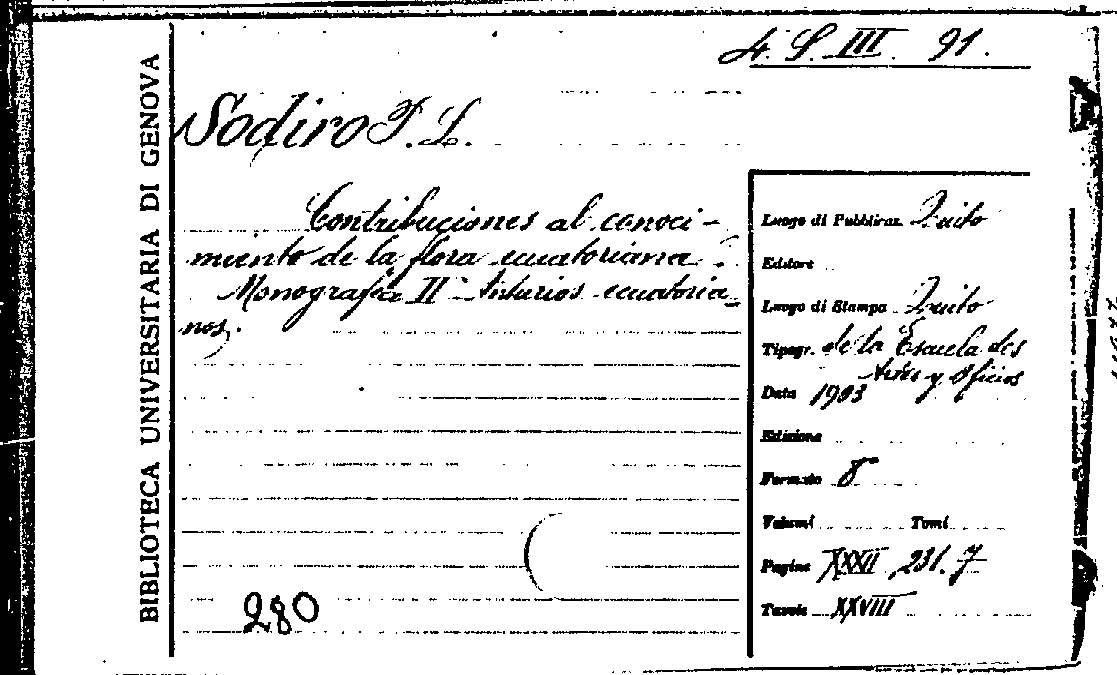 4. S. III. 91.
BIBLIOTECA UNIVERSITARIA DI GENOVA
Sodiro S. L.
Contribuciones al conoci-
miento de la flora ecuatoriana.
Monografia II Anturios ecuatoria-
nos.
280
Luogo di Pubblicaz. Quito
Editore
Luogo di Stampa Quito
Tipogr. de la Escuela des
Artes y Oficios
Data 1903
Edizione
Formato 8°
Volumi Tomi
Pagine XXXII, 231. 7
Tavole XXVIII